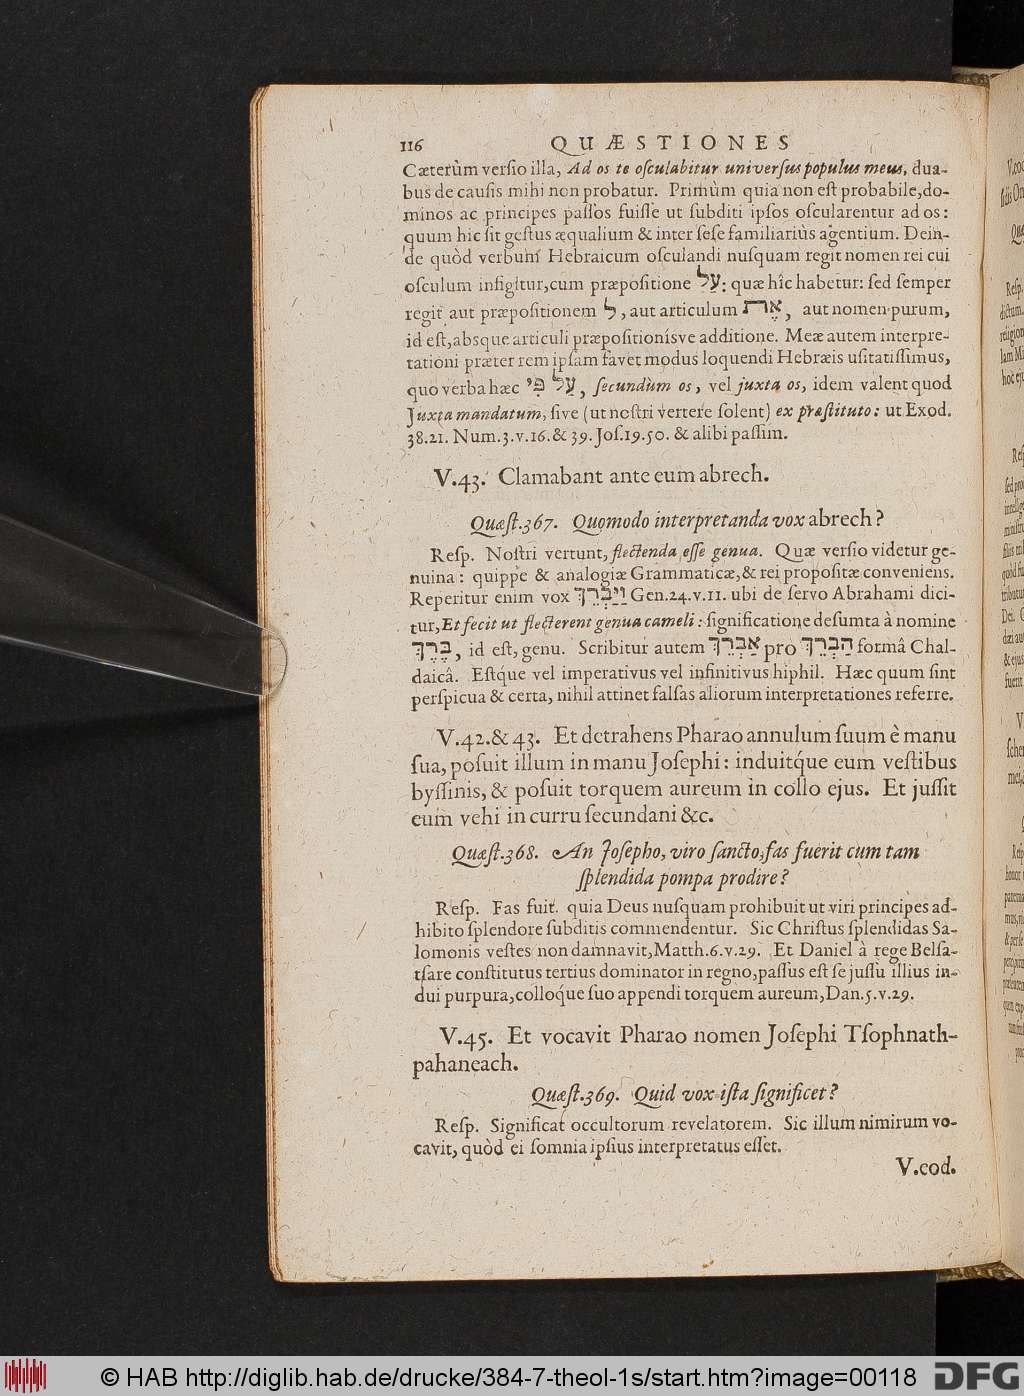 116 QUÆSTIONES
Cæterùm verſio illa, Ad os te oſculabitur univerſus populus meus, dua-
bus de cauſis mihi non probatur. Primùm quia non eſt probabile, do-
minos ac principes paſſos fuiſſe ut ſubditi ipſos oſcularentur ad os:
quum hic ſit geſtus æqualium & inter ſeſe familiariùs agentium. Dein-
de quòd verbum Hebraicum oſculandi nuſquam regit nomen rei cui
oſculum infigitur, cum præpoſitione עַל: quæ hîc habetur: ſed ſemper
regit aut præpoſitionem ל, aut articulum אֶת, aut nomen purum,
id eſt, absque articuli præpoſitionísve additione. Meæ autem interpre-
tationi præter rem ipſam favet modus loquendi Hebræis uſitatiſſimus,
quo verba hæc עַל פִּי, ſecundùm os, vel juxta os, idem valent quod
Juxta mandatum, ſive (ut noſtri vertere ſolent) ex præſtituto: ut Exod.
38.21. Num.3.v.16.& 39. Joſ.19.50. & alibi paſſim.
V.43. Clamabant ante eum abrech.
Quæſt.367. Quomodo interpretanda vox abrech?
Reſp. Noſtri vertunt, flectenda eſſe genua. Quæ verſio videtur ge-
nuina: quippe & analogiæ Grammaticæ, & rei propoſitæ conveniens.
Reperitur enim vox וַיַּבְרֵךְ Gen.24.v.11. ubi de ſervo Abrahami dici-
tur, Et fecit ut flecterent genua cameli: ſignificatione deſumta à nomine
בֶּרֶךְ, id eſt, genu. Scribitur autem אַבְרֵךְ pro הַבְרֵךְ formâ Chal-
daicâ. Eſtque vel imperativus vel infinitivus hiphil. Hæc quum ſint
perſpicua & certa, nihil attinet falſas aliorum interpretationes referre.
V.42.& 43. Et detrahens Pharao annulum ſuum è manu
ſua, poſuit illum in manu Joſephi: induitque eum veſtibus
byſſinis, & poſuit torquem aureum in collo ejus. Et juſſit
eum vehi in curru ſecundani &c.
Quæſt.368. An Joſepho, viro ſancto, fas fuerit cum tam
ſplendida pompa prodire?
Reſp. Fas fuit. quia Deus nuſquam prohibuit ut viri principes ad-
hibito ſplendore ſubditis commendentur. Sic Chriſtus ſplendidas Sa-
lomonis veſtes non damnavit, Matth.6.v.29. Et Daniel à rege Belſa-
tſare conſtitutus tertius dominator in regno, paſſus eſt ſe juſſu illius in-
dui purpura, colloque ſuo appendi torquem aureum, Dan.5.v.29.
V.45. Et vocavit Pharao nomen Joſephi Tſophnath-
pahaneach.
Quæſt.369. Quid vox iſta ſignificet?
Reſp. Significat occultorum revelatorem. Sic illum nimirum vo-
cavit, quòd ei ſomnia ipſius interpretatus eſſet.
V.eod.
© HAB http://diglib.hab.de/drucke/384-7-theol-1s/start.htm?image=00118
DFG